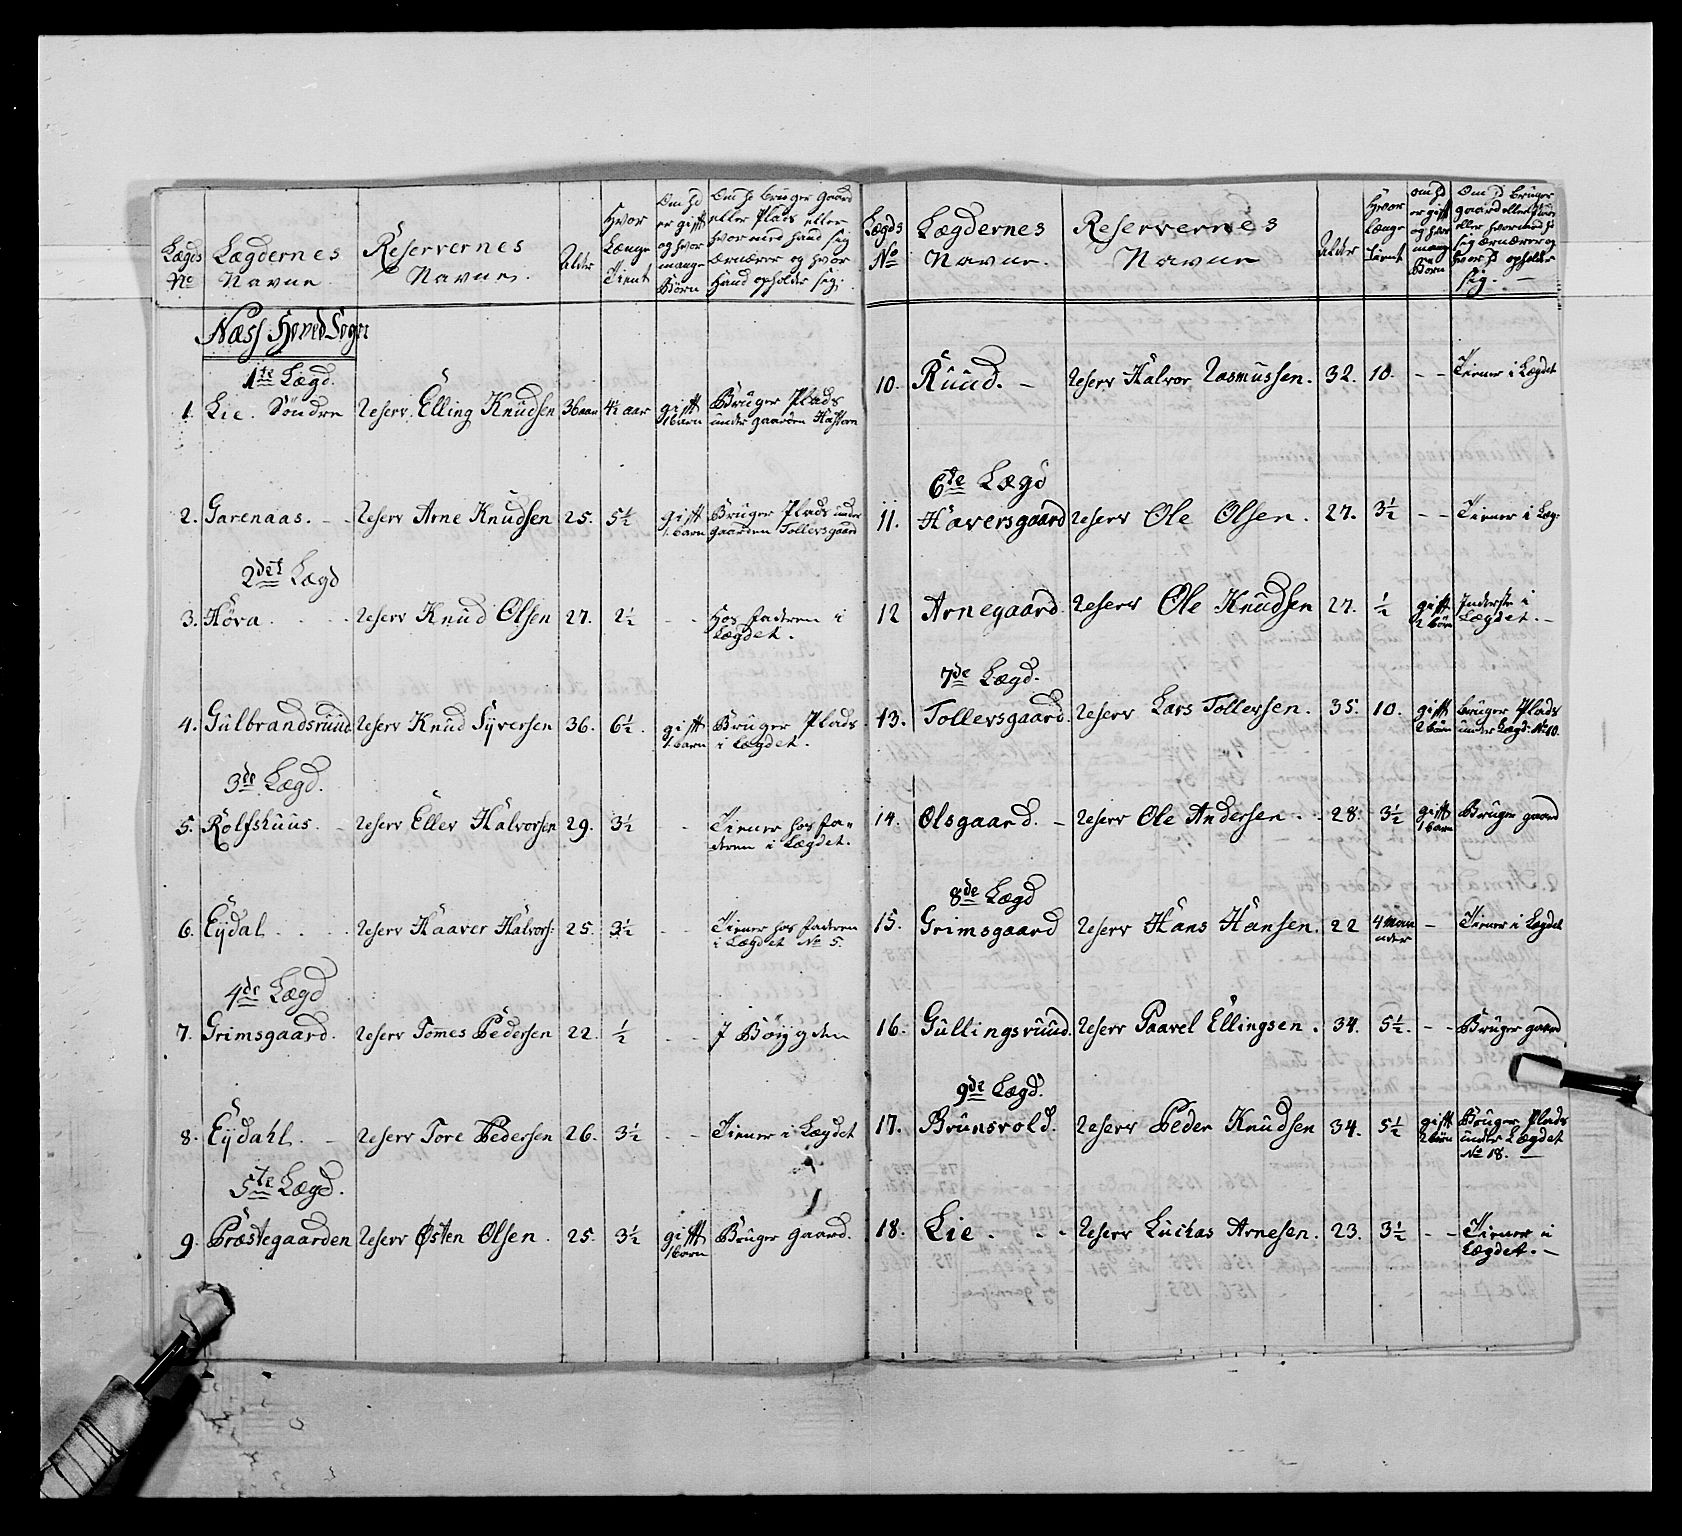 Lægds No
Lægdernes Navne
Reservernes Navne.
Alder
Hvor Længe Tient
Om Hd er gift og hvor mange Børn
Om Hd bruger Gaard eller Plads eller hvor med hand sig Ærnærer og hvor Hand opholder sig.
Næss Hoved Sogn
1te Lægd.
1. Lie. Søndre Reserv. Elling Knudsen 36 aar 4½ aar gift 1 barn Bruger Plads under gaarden
2. Garenaas. - - Reserv Arne Knudsen 25. 5½ gift 1. barn Bruger Plads under gaarden Tollevsgaard
2det Lægd
3. Höva . . . Reserv Knud Olsen 27. 2½ - - Hos faderen i Lægdet.
4. Gulbrandsruud Reserv Knud Syversen 36. 6½. gift 1. barn Bruger Plads i Lægdet.
3de Lægd.
5. Rolfshuus. - Reserv Ellev Halvorsen 29. 3½ - Tiener hos faderen i Lægdet.
6. Eÿdal . . . Reserv Haaver Halvors: 25. 3½ - - Tiener hos faderen i Lægdet No 5.
4de Lægd
7. Grimsgaard. Reserv Tomes Pedersen 22. ½ - - J Bøÿgden
8. Eÿdahl. - Reserv Tore Pedersen 26. 3½ - - Tiener i Lægdet
5te Lægd.
9. Præstegaarden Reserv Østen Olsen. 25. 3½ gift 1 barn Bruger gaard.
Lægds No
Lægdernes Navne.
Reservernes Navne
Alder
Hvor Længe tient
om Hd er gift og hvor mange Børn
Om Hd bruger gaard eller plads eller hvormed Hd sig ærnærer og hvor Hd opholder sig. -
10. Ruud. - Reserv Halvor Rasmussen. 32. 10. - - Tiener i Lægdet
6te Lægd
11. Haversgaard Reserv Ole Olsen. 27. 3½ - - Tiener i Læg:
12 Arnegaard. Reserv Ole Knudsen 27. ½ gift 2 børn Inderste i Lægdet. -
7de Lægd.
13. Tollevsgaard. Reserv Lars Tollevsen. 35. 10. gift 2 børn bruger Plads under Lægd: No 10.
14. Olsgaard. - Reserv Ole Andersen . - 28. 3½ gift 1 barn Bruger gaard
8de Lægd
15. Grimsgaard Reserv Hans Hansen. 22 4 maaneder - Tiener i Lægdet
16. Gullingsruud. Reserv Paavel Ellingsen. 34. 5½. - - Bruger gaard
9de Lægd.
17. Brunsvold. Reserv Peder Knudsen 34. 5½ gift 2 børn Bruger Plads under Lægdet No 18. -
18. Lie . - - Reserv Luckas Arnesen. 23. 3½ - - Tiener i Lægdet. -